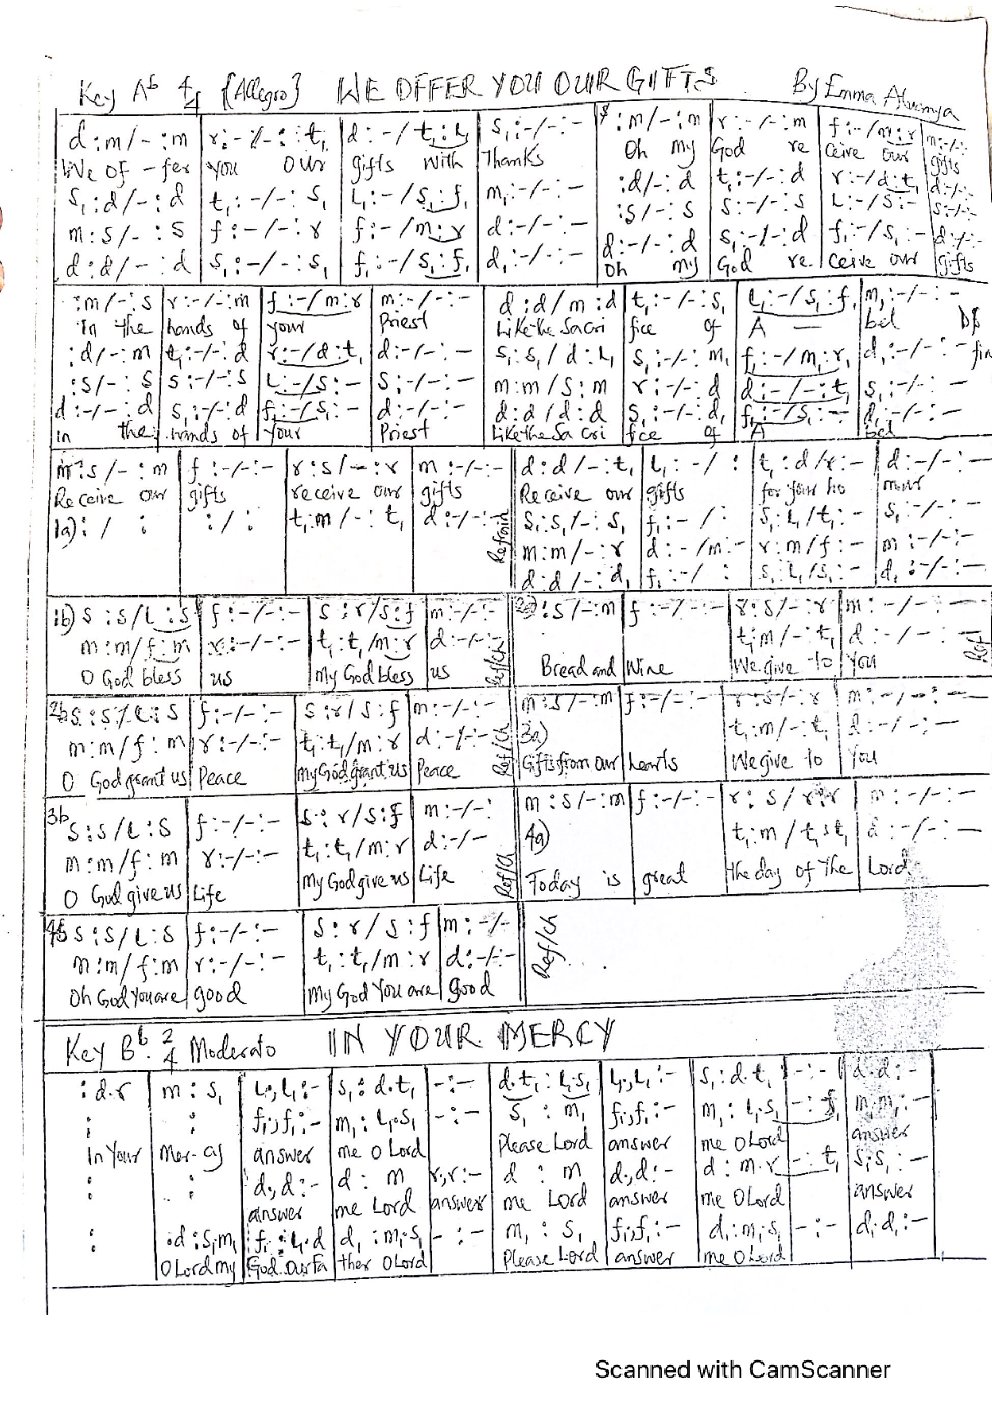 Key Ab 4/4 {Allegro} WE OFFER YOU OUR GIFTS By Emma
d : m / - : m | r : - / - : t, | d : - / t, : l, | s, : - / - : - | : m / - : m | r : - / - : m | f : - / m : r | m : - / -
We of - fer you our gifts with Thanks Oh my God re ceive our gifts
s, : d / - : d | t, : - / - : s, | l, : - / s, : f, | m, : - / - : - | : d / - : d | t, : - / - : d | r : - / d : t, | d : - / -
m : s / - : s | f : - / - : r | f : - / m : r | d : - / - : - | : s / - : s | s : - / - : s | l : - / s : - | s : - / -
d : d / - : d | s, : - / - : s, | f, : - / s, : f, | d, : - / - : - | d : - / - : d | s, : - / - : d | f, : - / s, : - | d : - / -
Oh my God re ceive our gifts
: m / - : s | r : - / - : m | f : - / m : r | m : - / - : - | d : d / m : d | t, : - / - : s, | l, : - / s, : f, | m, : - / - : -
In the hands of your Priest Like the Sacri fice of A — bel
: d / - : m | t, : - / - : d | r : - / d : t, | d : - / - : - | s, : s, / d : l, | s, : - / - : m, | f, : - / m, : r, | d, : - / - : -
: s / - : s | s : - / - : s | l : - / s : - | s : - / - : - | m : m / s : m | r : - / - : d | d : - / - : t, | s, : - / - : -
d : - / - : d | s, : - / - : d | f, : - / s, : - | d : - / - : - | d : d / d : d | s, : - / - : d, | f, : - / s, : - | d, : - / - : -
in the hands of Your Priest Like the Sa cri fice of A bel
m : s / - : m | f : - / - : - | r : s / - : r | m : - / - : - | d : d / - : t, | l, : - / : | t, : d / r : - | d : - / - : -
Receive our gifts receive our gifts Receive our gifts for your ho nour
1a) : / : | : / : | t, : m / - : t, | d : - / - : - | Refrain | s, : s, / - : s, | f, : - / : | s, : l, / t, : - | s, : - / - : -
m : m / - : r | d : - / m : - | r : m / f : - | m : - / - : -
d : d / - : d, | f, : - / : | s, : l, / s, : - | d, : - / - : -
1b) s : s / l : s | f : - / - : - | s : r / s : f | m : - / - : - | 2a) : s / - : m | f : - / - : - | r : s / - : r | m : - / - : -
m : m / f : m | r : - / - : - | t, : t, / m : r | d : - / - : - | Ref/Ch | t, : m / - : t, | d : - / - : -
O God bless us My God bless us Bread and Wine We give to you
2b s : s / l : s | f : - / - : - | s : r / s : f | m : - / - : - | m : s / - : m | f : - / - : - | r : s / - : r | m : - / - : -
m : m / f : m | r : - / - : - | t, : t, / m : r | d : - / - : - | Ref/Ch | 3a) | t, : m / - : t, | d : - / - : -
O God grant us Peace my God grant us Peace Gifts from our hearts We give to you
3b s : s / l : s | f : - / - : - | s : r / s : f | m : - / - : | m : s / - : m | f : - / - : - | r : s / r : r | m : - / - : -
m : m / f : m | r : - / - : - | t, : t, / m : r | d : - / - | Ref/Ch | 4a) | t, : m / t, : t, | d : - / - : -
O God give us Life my God give us Life Today is great the day of the Lord
4b s : s / l : s | f : - / - : - | s : r / s : f | m : - / - | Ref/Ch
m : m / f : m | r : - / - : - | t, : t, / m : r | d : - / - : -
Oh God You are good My God You are good
Key Bb. 2/4 Moderato IN YOUR MERCY
: d . r | m : s, | l,; l, : - | s, : d . t, | - : - | d . t, : l, . s, | l,; l, : - | s, : d . t, | - : - | d . d : -
: | : | f,; f, : - | m, : l, . s, | - : - | s, : m, | f,; f, : - | m, : l, . s, | - : f, | m . m, : -
In Your Mer- cy answer me O Lord Please Lord answer me O Lord answer
: | : | d., d : - | d : m | r., r : - | d : m | d., d : - | d : m . r | - : t, | s, s, : -
answer me Lord answer me Lord answer me O Lord answer
: | : d : s, m, | f, : l, . d | d, : m, . s, | - : - | m, : s, | f,; f, : - | d, : m, . s, | - : - | d, d, : -
O Lord my God. our Fa ther O Lord Please Lord answer me O Lord
Scanned with CamScanner